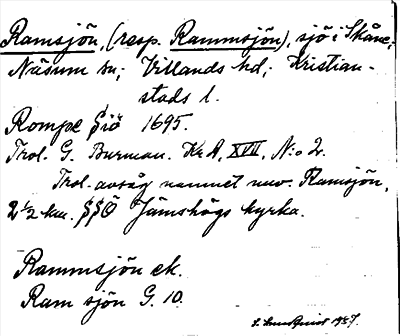 Ramsjön, (resp. Rammsjön), sjö i Skåne;
Näsum sn; Villands hd; Kristian-
stads l.
Rompe Siö 1695.
Trol. G. Burman. Kr A, XVII, N:o 2.
Trol. avsåg namnet nuv. Ramsjön,
2 1/2 km. SSÖ Jämshögs kyrka.
Rammsjön ek.
Ram sjön G. 10.
1937.